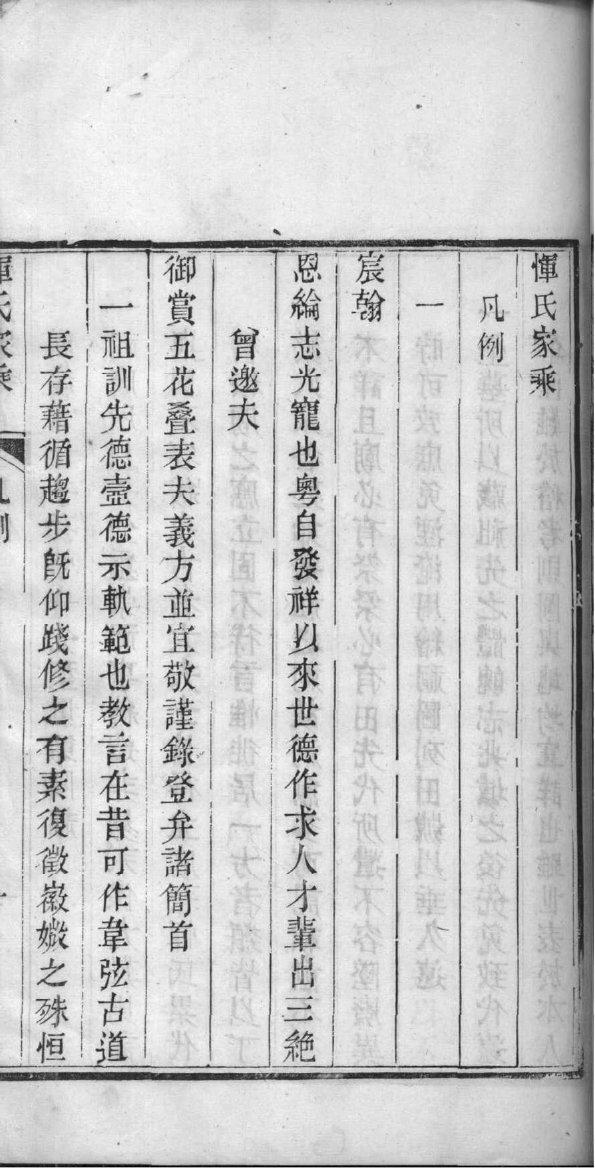 惲氏家乘
凡例
一
宸翰
恩綸志光寵也粵自發祥以來世德作求人才輩出三絶
曾邀夫
御賞五花叠表夫義方並宜敬謹錄登弁諸簡首
一祖訓先德壼德示軌範也教言在昔可作韋弦古道
長存藉循趨步旣仰踐修之有素復徵嶶媺之殊恒
惲氏家乘
凡例